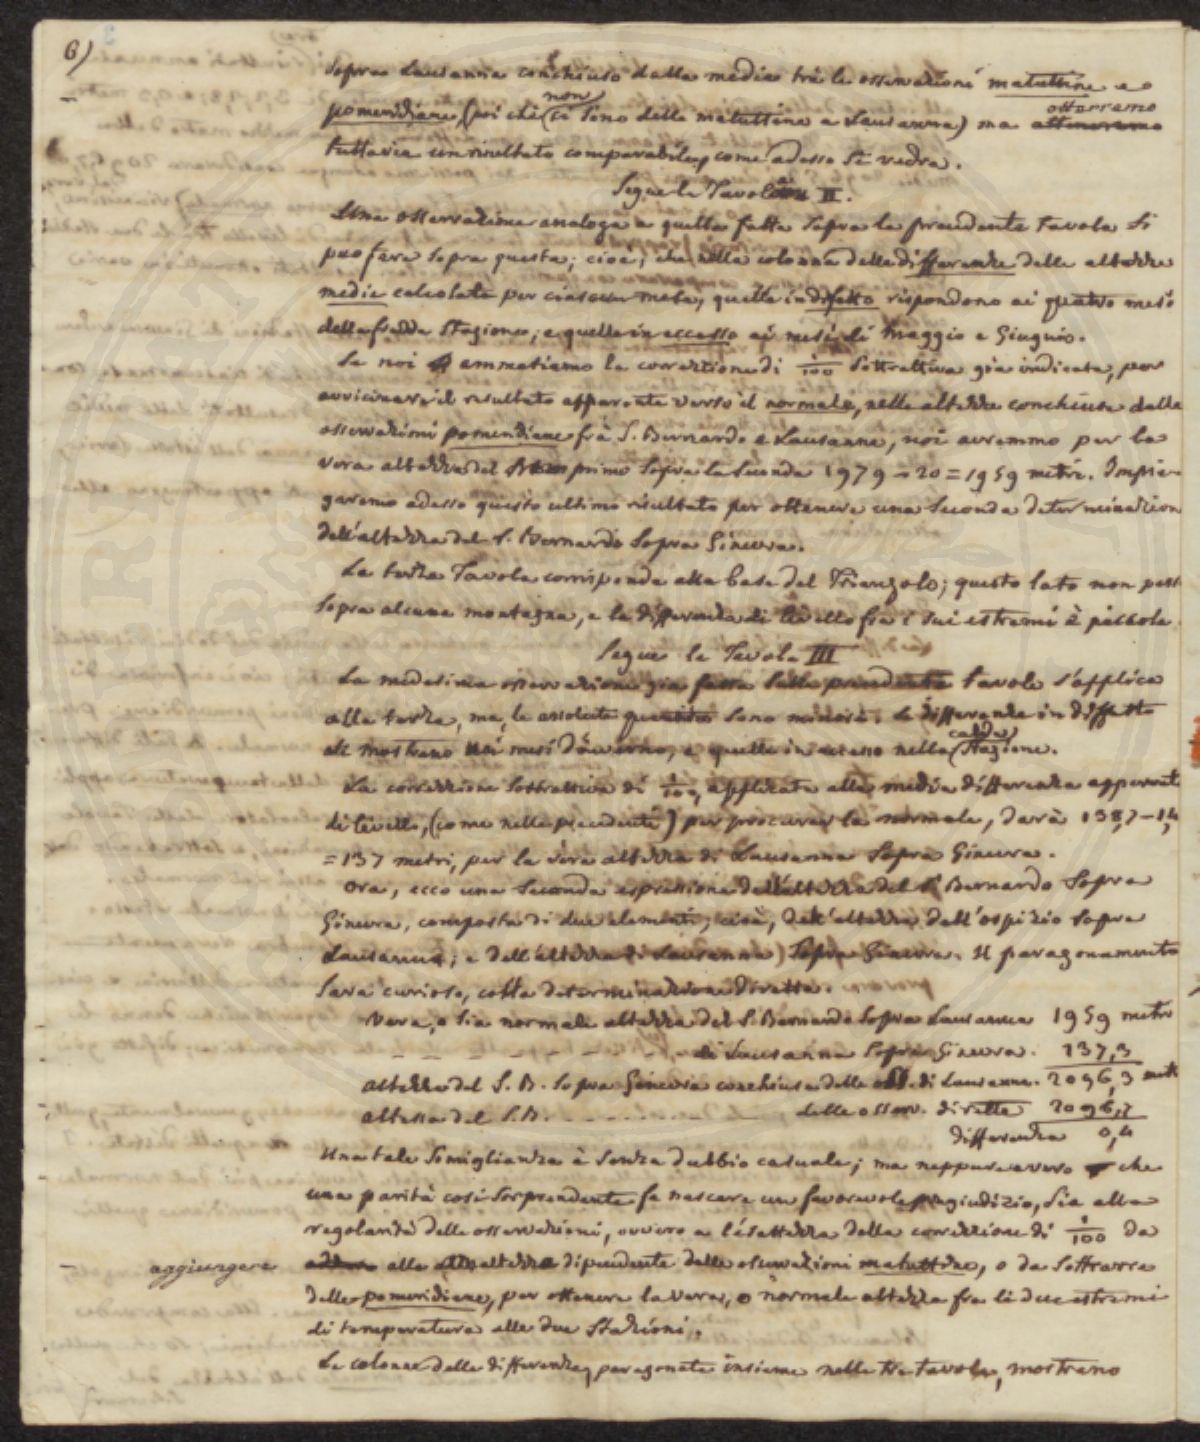 6)
Sopra Lausanna conchiuso dalla media trà le osservazioni matuttine e
pomeridiane, (poi chè non ci sono delle matuttine a Lausanna) ma otterremo
tuttavia un risultato comparabile, come adesso si vedra.
Segue la Tavola II.
Una osservazione analoga a quella fatta sopra la precedente tavola si
può fare sopra questa; cioè, che nella colonna delle differenze delle altezze
medie calcolate per ciascun mese, quelle in difetto rispondono ai quatro mesi
della fredda stagione; e quelle in eccesso ai mesi di Maggio e Giugnio.
Se noi ammetiamo la correzione di 1/100 sottrattiva gia indicata, per
avvicinare il risultato apparente verso il normale, nelle altezze conchiuse dalle
osservazioni pomeridiane frà S. Bernardo e Lausanne, noi avremmo per la
vera altezza del primo sopra la seconda 1979 - 20 = 1959 metri. Impie-
garemo adesso questo ultimo risultato per ottenere una seconda determinazion
dell'altezza del S. Bernardo sopra Ginevra.
La terza Tavola corrisponde alla base del Triangolo; questo lato non pass
sopra alcuna montagna, e la differenza di livello fra i sui estremi è picchola
Segue la Tavola III
La medesima osservazione gia fatta sulle precedente tavole s'applica
alla terza, ma le assolute quantità sono minori. Le differenze in diffetto
si mostrano nei mesi d'inverno, e quelle in eccesso nella calda stagione.
La correzione sottrattiva di 1/100, applicata alla media differenza apparente
di livello, (come nelle precedenti) per procurar la normale, darà 138,7 - 1,4
= 137 metri, per la vera altezza di Lausanna sopra Ginevra.
Ora, ecco una seconda espressione dell'altezza del S. Bernardo sopra
Ginevra, composta di due elementi; cioè, dell'altezza dell'ospizio sopra
Lausanna; e dell'altezza di Lausanna) sopra Ginevra. Il paragonamento
sara curioso, colla determinazione diretta.
Vera, o sia normale altezza del S. Bernardo sopra Lausanna 1959 metri
di Lausanna sopra Ginevra. 137,3
altezza del S. B. sopra Ginevra conchiusa dalle oss. di Lausanne. 2096,3 met
altessa del S. B. - - - - - - - - delle osserv. dirette 2096,7
differenza 0,4
Una tale somiglianza è senza dubbio casuale; ma neppure è vero che
una parità così sorprendente fa nascere un favorevole pregiudizio, sia alla
regolarità delle osservazioni, ovvero a l'esattezza della correzione di 1/100 da
aggiungere alle altezze dipendente dalle osservazioni matuttine, o da sottrarre
dalle pomeridiane, per ottenere la vera, o normale altezza fra li due estremi
di temperatura alle due stazioni.
Le colonne delle differenze, paragonate insieme nelle tre tavole, mostrano